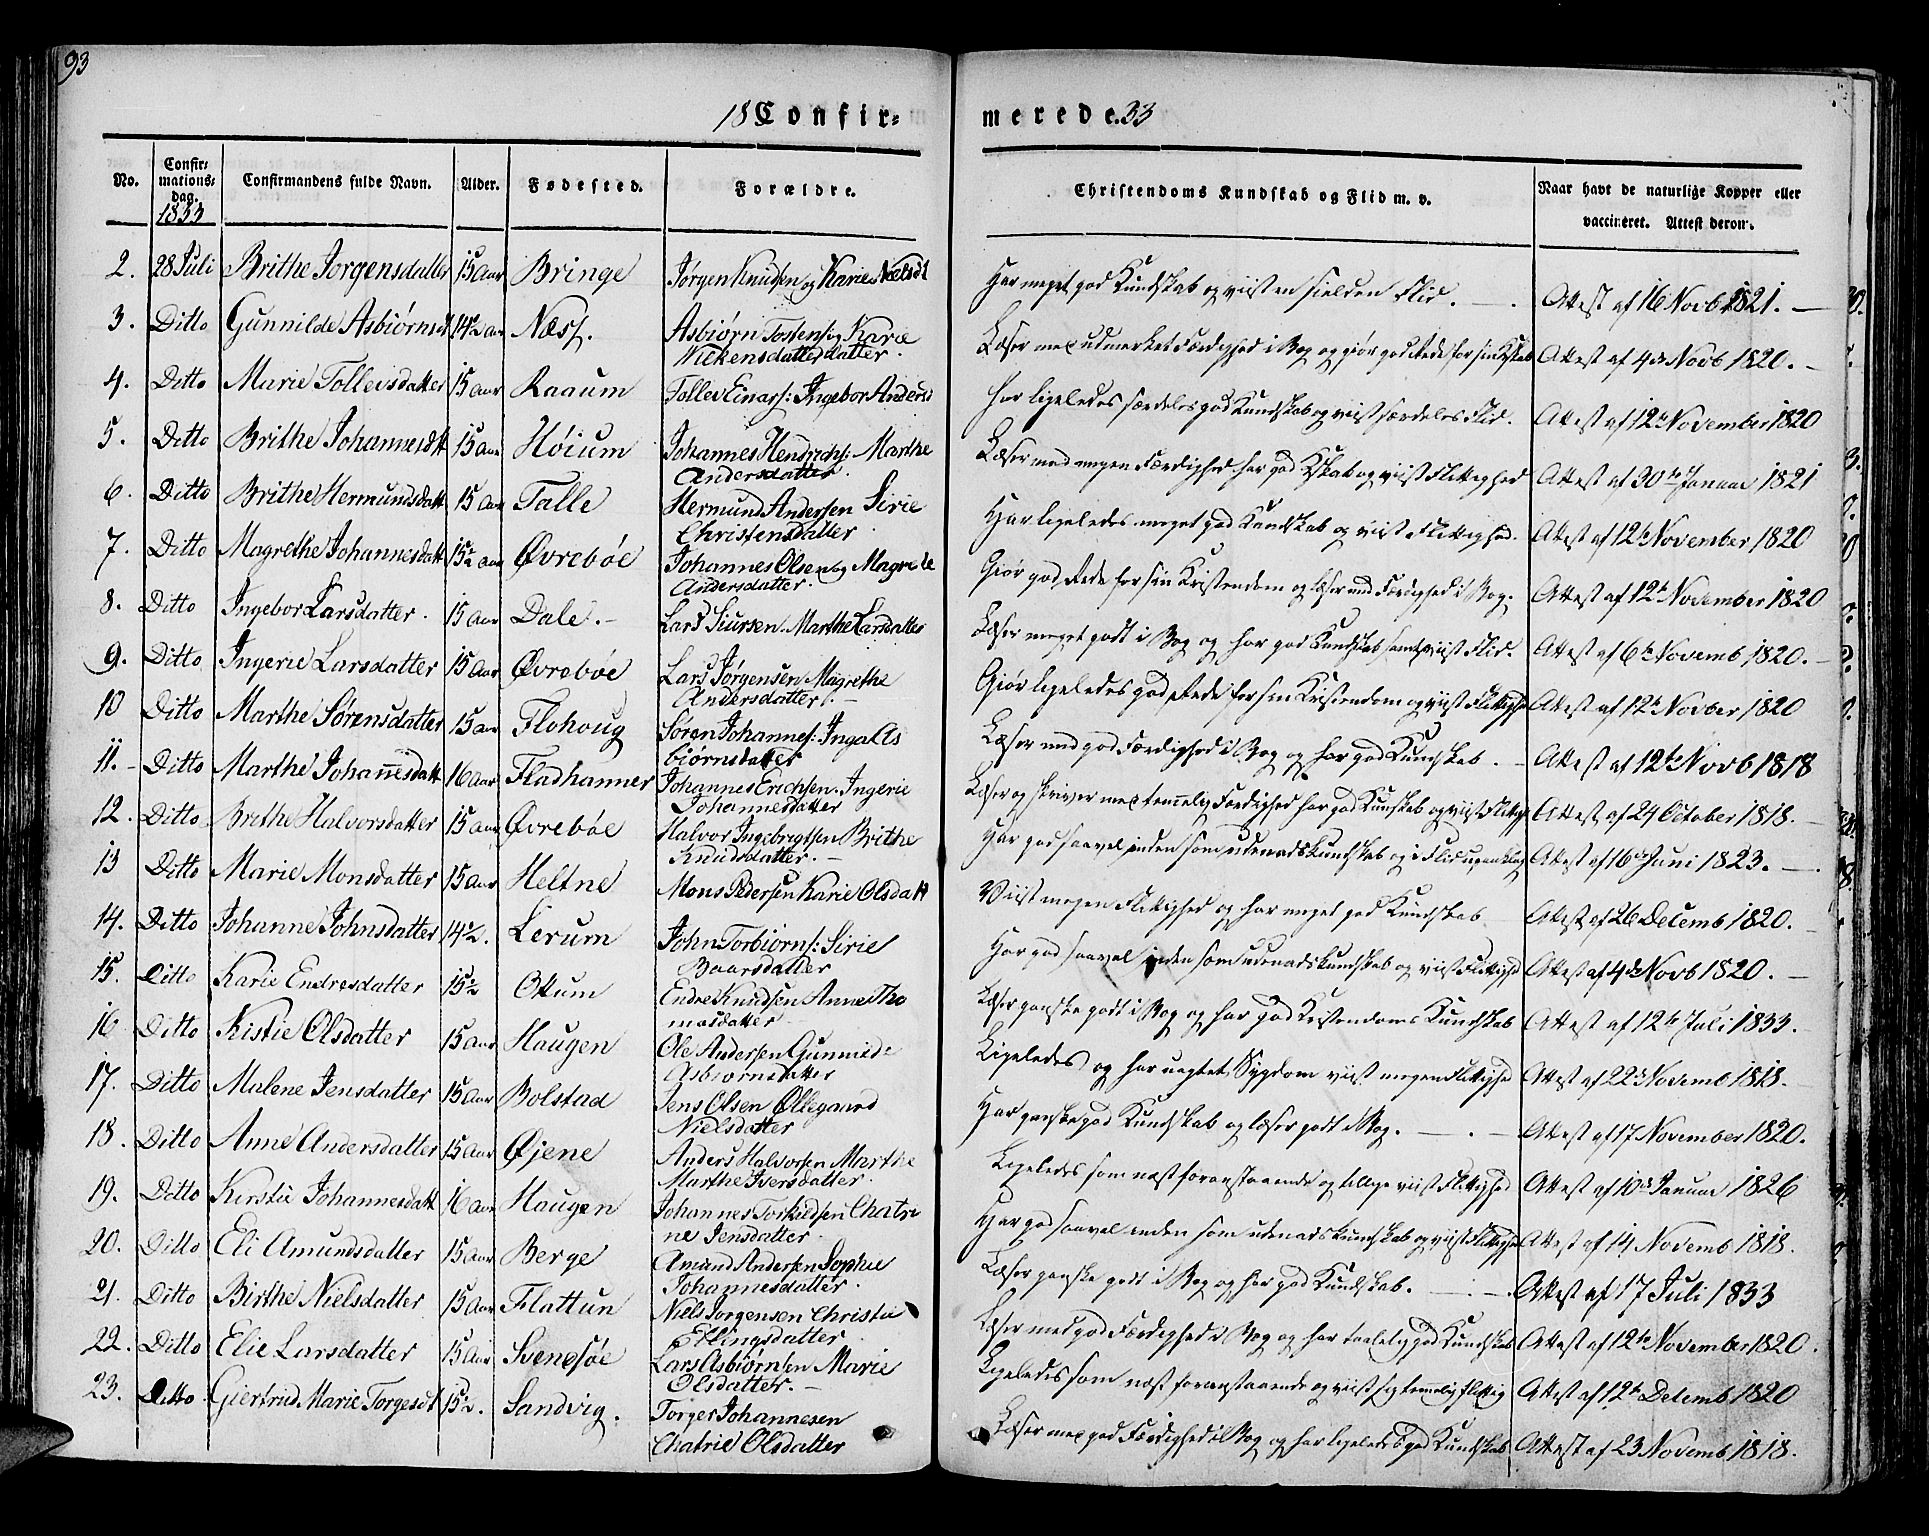 93
18 Confir= merede. 33
No. Confir= mations= dag. 1833 Confirmandens fulde Navn. Alder. Fødested. Forældre. Christendoms Kundskab og Flid m. v. Naar havt de naturlige Kopper eller vaccineret. Attest derom.
2. 28 Juli Brithe Jorgensdatter 15 Aar Bringe Jørgen Knudsen og Karie Nielsdt Har meget god Kundskab og viist en sielden Flid. Attest af 16 Novb 1821.
3. Ditto Gunnilde Asbiørnsd 14½ Aar Næss. Asbiørn Tostens. og Karie
Læser med udmerket Færdighed i Bog og giør god Rede for sin Kskab Attest af 4de Novb 1820.
4. Ditto Marie Tollevsdatter 15 Aar Raaum Tollev Einars: Ingebor Andersd
Har ligeledes særdeles god Kundskab og viist særdeles Flid. Attest af 12te November 1820
5. Ditto Brithe Johannesdtt 15 Aar Høium Johannes Hendrichs: Marthe
Andersdatter.
Læser med megen Færdighed har god Kskab og viist Flittighed Attest af 30te Januar 1821
6. Ditto Brithe Hermundsdatt 15 Aar Talle Hermund Andersen Sirie
Christensdatter
Har ligeledes meget god Kundskab og viist Flittighed. Attest af 12te November 1820
7. Ditto Magrethe Johannesdatt 15½ Aar Øvrebøe Johannes Olsen og Magrede
Andersdatter.
Giør god Rede for sin Kristendom og læser med Færdighed i Bog. Attest af 12te November 1820
8. Ditto Ingebor Larsdatter. 15 Aar Dale. Lars Siursen. Marthe Larsdatter
Læser meget godt i Bog og har god Kundskab samt viist Flid. Attest af 6te Novemb 1820.
9. Ditto Ingerie Larsdatter 15 Aar Øvrebøe Lars Jørgensen Magrethe
Andersdatter.
Giør ligeledes god Rede for sin Kristendom og viist Flittighd Attest af 12te Novber 1820
10 Ditto Marthe Sørensdatter 15 Aar Flohoug Søren Johannes: Inga As
biørnsdatter
Læser med god Færdighed i Bog og har god Kundskab. Attest af 12te Novb 1818
11. Ditto Marthe Johannesdatt 16 Aar Fladhammer Johannes Erichsen. Ingerie
Johannesdatter
Læser og skriver med temmelig Færdighed har god Kunskab og viist Flittigh Attest af 24 October 1818.
12. Ditto Brithe Halvorsdatter 15 Aar Øvrebøe Halvor Ingebrigtsen Brithe
Knudsdatter.
Har god saavel inden som udenads Kundskab og i Flid upaaklag Attest af 16de Juni 1823.
13 Ditto Marie Monsdatter 15 Aar Heltne Mons Pedersen Karie Olsdatt
Viist megen Flittighed og har meget god Kundskab Attest af 26 Decemb 1820.
14. Ditto Johanne Johnsdatter 14½. Lerum John Torbiørns: Sirie
Baarsdatter
Har god saavel inden som udenads Kundskab og viist Flittighd Attest af 4de Novb 1820.
15. Ditto Karie Endresdatter 15½ Ottum Endre Knudsen Anne Tho
masdatter
Læser ganske godt i Bog og har god Kristendoms Kundskab Attest af 12te Juli 1833.
16 Ditto Kistie Olsdatter 15 Aar Haugen Ole Andersen Gunnilde
Asbiørnsdatter
Ligeledes og har uagtet Sygdom viist megen Flittighd Attest af 22de Novemb 1818.
17. Ditto Malene Jensdatter 15 Aar Bolstad Jens Olsen Øllegaard
Nielsdatter
Har ganske god Kundskab og læser godt i Bog. Attest af 17 November 1820.
18. Ditto Anne Andersdatter 15 Aar Øjene Anders Halvorsen Marthe
Marthe Iversdatter.
Ligeledes som næst foranstaaende og tillige viist Flittighed Attest af 10de Januar 1826
19. Ditto Kirstie Johannesdatt 16 Aar Haugen Johannes Torkildsen Chatri
ne Jensdatter
Har god saavel inden som udenads Kundskab og viist Flittighe Attest af 14 Novemb 1818.
20. Ditto Eli Amundsdatter 15 Aar Berge Amund Andersen Sophie
Johannesdatter.
Læser ganske godt i Bog og har god Kundskab. Attest af 17 Juli 1833
21. Ditto Birthe Nielsdatter 15 Aar Flattun Niels Jorgensen Christie
Erlingsdatter
Læser med god Færdighed i Bog og har taalelig god Kundskab Attest af 12te November 1820.
22. Ditto Elie Larsdatter 15 Aar Svenesøe Lars Asbiørnsen Marie
Olsdatter.
Ligeledes som næst foranstaaende og viist sig temelig flittig Attest af 12te Decemb 1820
23. Ditto Giertrud Marie Torgersdt 15½. Sandvig. Torger Johannesen
Chatrie Olsdatter
Læser med god Færdighed i Bog og har ligeledes god Kundskab Attest af 23 Novemb 1818.